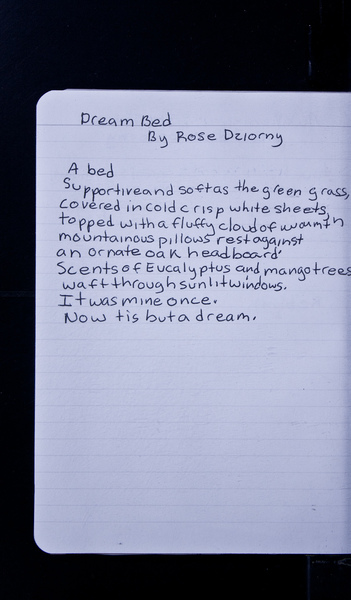 Dream Bed
By Rose Dziorny
A bed
Supportive and soft as the green grass,
covered in cold crisp white sheets,
topped with a fluffy cloud of warmth
mountainous pillows rest against
an ornate oak headboard.
Scents of Eucalyptus and mango trees
waft through sunlit windows.
It was mine once.
Now tis but a dream.